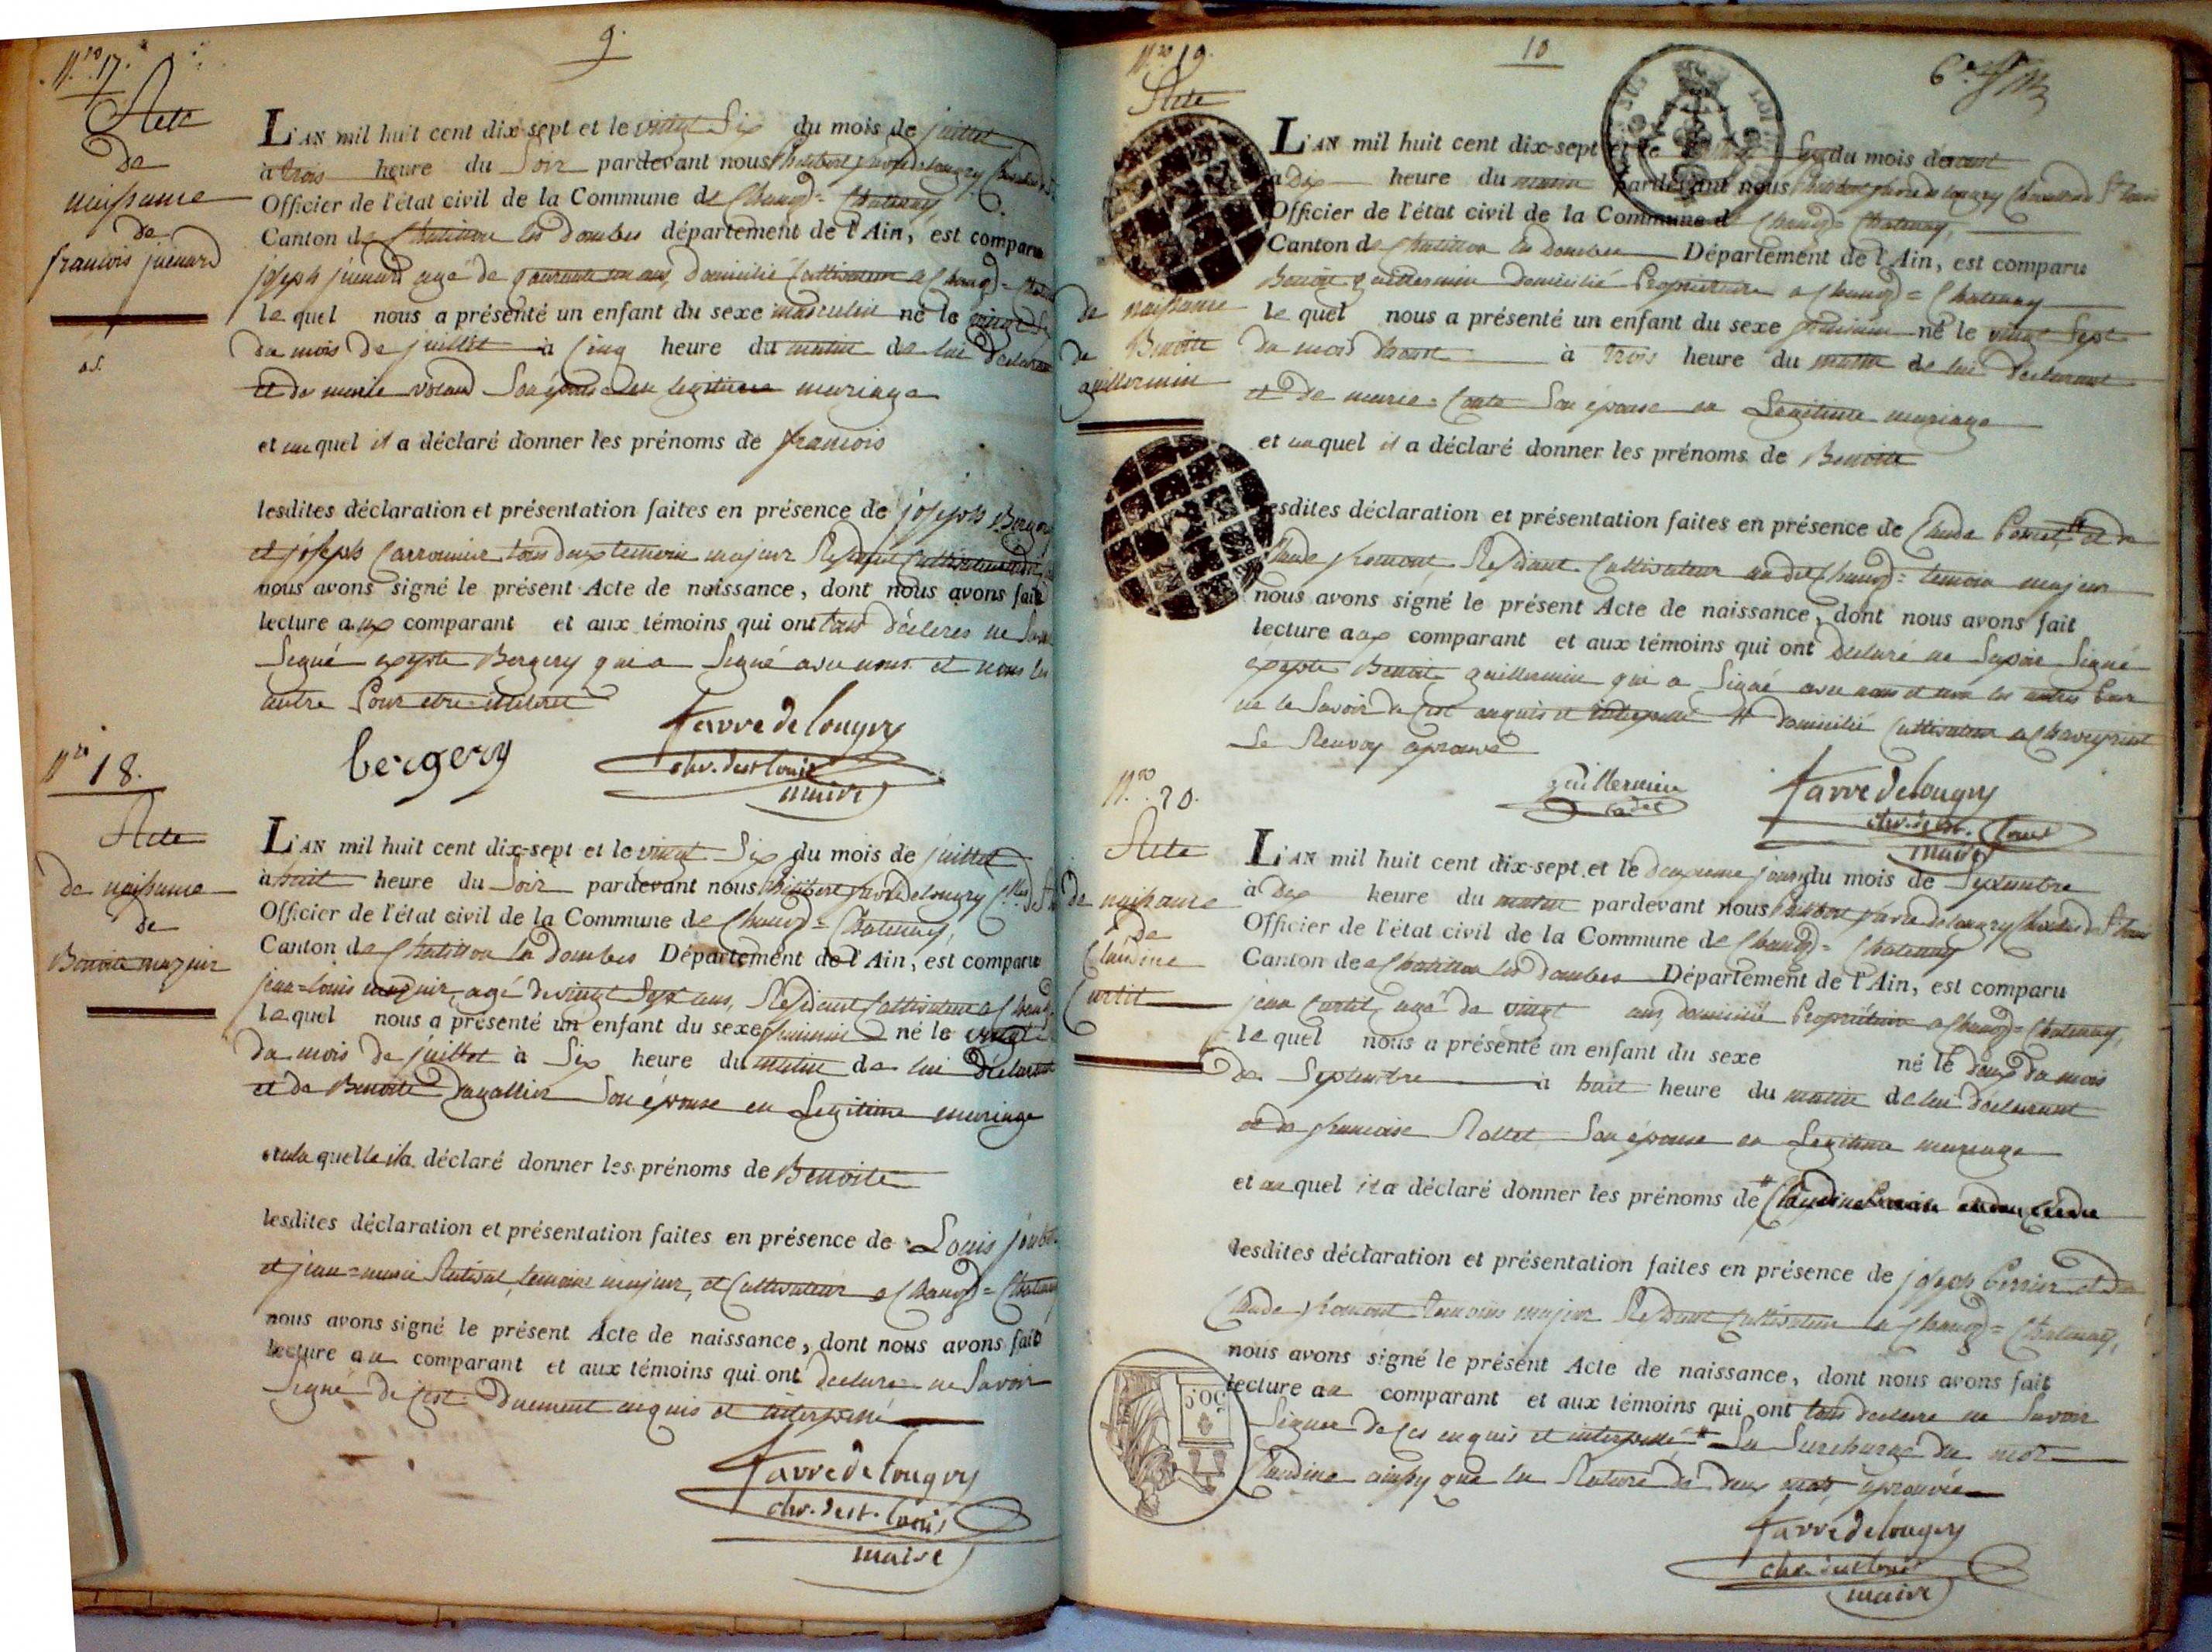 9.
Nro 17.
Acte
de
naissance
de
francois juenard
L'AN mil huit cent dix-sept et le vingt Six du mois de juillet
à trois heure du Soir pardevant nous philibert favre de longry
Officier de l'état civil de la Commune de Chanoz = Chatenay
Canton de Chatillon les dombes département de l'Ain, est comparu
joseph juenard agé de quarante un ans, domicilié Cultivateur a Chanoz =
le quel nous a présenté un enfant du sexe masculin né le vingt Six
du mois de juillet à Cinq heure du matin de lui déclarant
et de marie voland Son épouse en legitime mariage
et au quel il a déclaré donner les prénoms de francois
lesdites déclaration et présentation faites en présence de joseph Bergery
et joseph Carronnier tous deux temoin majeur Residant Cultivateur
nous avons signé le présent Acte de naissance, dont nous avons fait
lecture aux comparant et aux témoins qui ont tous déclerés ne Savoir
Signé expte Bergery qui a Signé avec nous et nous les
autre Pour etre
bergery
favre de longry
chv. de st Louis
maire
Nro 18.
Acte
de naissance
de
Benoite
L'AN mil huit cent dix-sept et le vingt Six du mois de juillet
à huit heure du Soir pardevant nous philibert favre de longry
Officier de l'état civil de la Commune de Chanoz = Chatenay,
Canton de Chatillon les dombes Département de l'Ain, est comparu
jean = louis agé de vingt Sept ans, Residant Cultivateur a Chanoz
le quel nous a présenté un enfant du sexe feminin né le vingt
du mois de juillet à Six heure du matin de lui déclarant
et de Benoite dagallier Son épouse en Legitime mariage
et a la quelle il a déclaré donner les prénoms de Benoite
lesdites déclaration et présentation faites en présence de Louis
et jean = marie temoins majeur, et Cultivateur a Chanoz = Chatenay
nous avons signé le présent Acte de naissance, dont nous avons fait
lecture au comparant et aux témoins qui ont declare ne Savoir
Signé de Cest duement enquis et interpellé
favre de longry
chv. de st. Louis
maire
10
Nro 19.
Acte
de naissance
de Benoite
guillermin
L'AN mil huit cent dix-sept et le vingt Sept du mois de
à Dix heure du matin pardevant nous philibert favre de longry Chevalier de St Louis
Officier de l'état civil de la Commune de Chanoz = Chatenay,
Canton de Chatillon les dombes Département de l'Ain, est comparu
Benoit guillermin domicilié Propriétaire a Chanoz = Chatenay
le quel nous a présenté un enfant du sexe feminin né le vingt Sept
du mois à trois heure du matin de lui declarant
et de marie = Son épouse en Legitime mariage
et auquel il a déclaré donner les prénoms de Benoite
lesdites déclaration et présentation faites en présence de Claude et de
Claude fromont Residant Cultivateur au dit Chanoz = temoin majeur
nous avons signé le présent Acte de naissance, dont nous avons fait
lecture aux comparant et aux témoins qui ont declaré ne Savoir Signé
expte Benoit guillermin qui a Signé avec nous et non les autres Pour
ne le Savoir de Cest enquis et interpellé # domicilié Cultivateur a Chaveyriat
Le Renvoy aprouvé
guillermin
cadet
favre de longry
chv. de st. Louis
maire
Nro 20.
Acte
de naissance
de
Claudine
Curtil
L'AN mil huit cent dix-sept et le deuxieme jour du mois de Septembre
à dix heure du matin pardevant nous philibert favre de longry Chevalier de St Louis
Officier de l'état civil de la Commune de Chanoz = Chatenay
Canton de Chatillon les dombes Département de l'Ain, est comparu
jean Curtil, agé de vingt ans, domicilié Propriétaire a Chanoz = Chatenay,
le quel nous a présenté un enfant du sexe né le deux du mois
de Septembre à huit heure du matin de lui déclarant
et de francoise Rollet Son épouse en Legitime mariage
et au quel il a déclaré donner les prénoms de # Claudine
lesdites déclaration et présentation faites en présence de joseph Perrier et de
Claude fromont temoins majeur Residant Cultivateur a Chanoz = Chatenay,
nous avons signé le présent Acte de naissance, dont nous avons fait
lecture au comparant et aux témoins qui ont tous declare ne Savoir
Signer de Ces enquis et interpellé # La Surcharge du mot
Claudine ainsy que la Rature de deux mots aprouvée
favre de longry
chv. de st Louis
maire